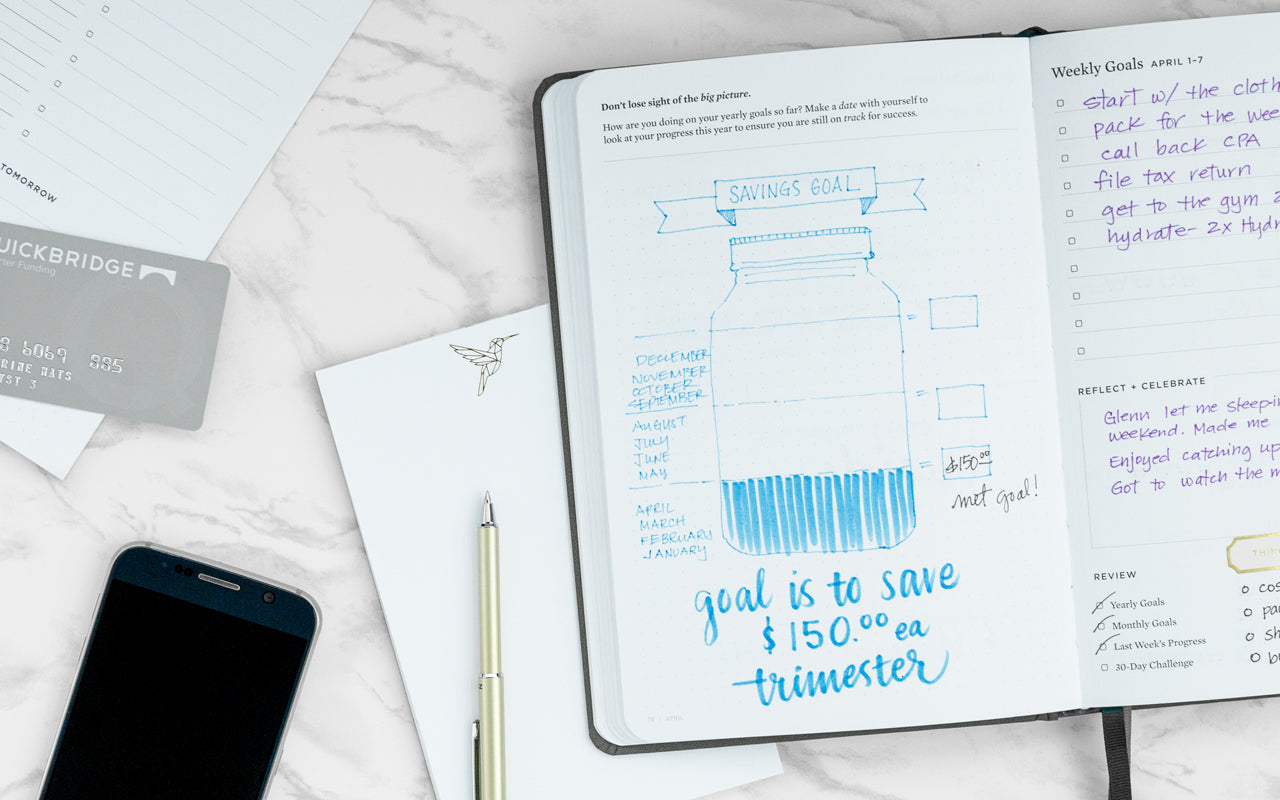 TOMORROW
UICKBRIDGE
rter Funding
8 6069 885
RINE MATS
YST 3
Don't lose sight of the big picture.
How are you doing on your yearly goals so far? Make a date with yourself to
look at your progress this year to ensure you are still on track for success.
SAVINGS GOAL
DECEMBER
NOVEMBER
OCTOBER
SEPTEMBER
AUGUST
JULY
JUNE
MAY
APRIL
MARCH
FEBRUARY
JANUARY
=
=
= $150.00
met goal!
goal is to save
$150.00 ea
trimester
76 | APRIL
Weekly Goals APRIL 1-7
start w/ the cloth
pack for the wee
call back CPA
file tax return
get to the gym 2
hydrate- 2x Hydr
REFLECT + CELEBRATE
Glenn let me sleep-in
weekend. Made me
Enjoyed catching up
Got to watch the m
THIN
REVIEW
Yearly Goals
Monthly Goals
Last Week's Progress
30-Day Challenge
cos
pa
sh
b